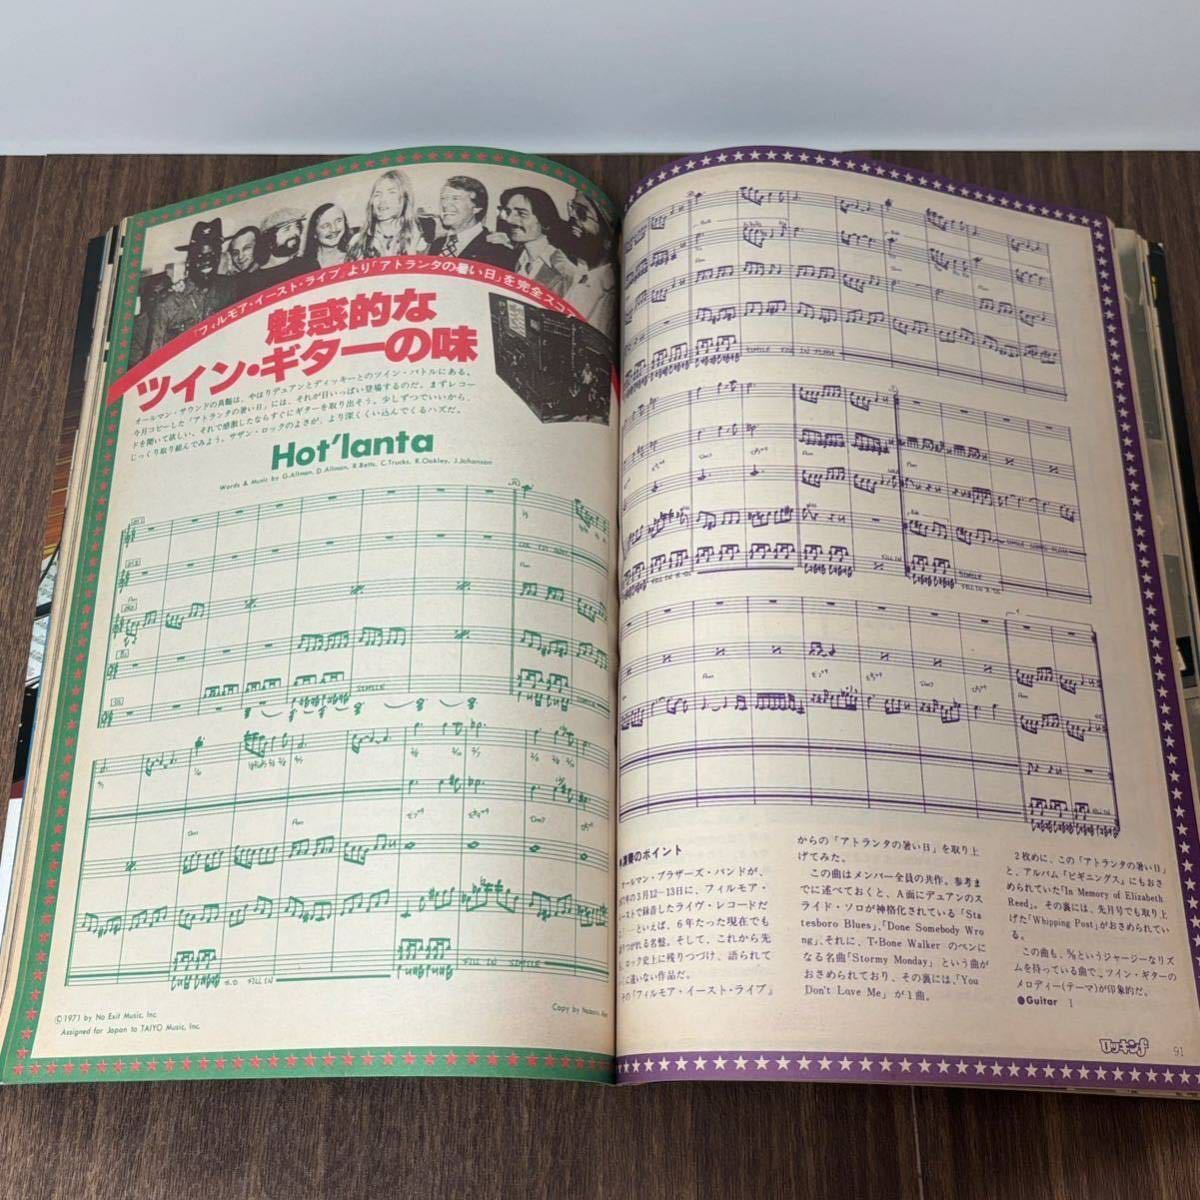 「フィルモア・イースト・ライブ」より「アトランタの暑い日」を完全スコア
魅惑的な
ツイン・ギターの味
オールマン・サウンドの真髄は、やはりデュアンとディッキーとのツイン・バトルにある。
今月コピーした「アトランタの暑い日」には、それが目いっぱい登場するのだ。まずレコー
ドを聞いて欲しい、それで感激したならすぐにギターを取り出そう。少しずつでいいから、
じっくり取り組んでみよう。サザン・ロックのよさが、より深くくい込んでくるハズだ。
Hot'lanta
Words & Music by G.Allman, D.Allman, R.Betts, C.Trucks, R.Oakley, J.Johanson
Am
SIMILE
Am
Am
Am
Dm7
S.D FILL IN
FILL IN SIMILE
©1971 by No Exit Music, Inc.
Assigned for Japan to TAIYO Music, Inc.
Copy by
SIMILE FILL IN
FILL IN
SIMILE
Am
Am
Dm7
FILL IN
演奏のポイント
オールマン・ブラザーズ・バンドが、
年の3月12−13日に、フィルモア・
ーストで録音したライヴ・レコードだ
といえば、6年たった現在でも
つがれる名盤。そして、これから先
ロック史上に残りつづけ、語られて
に違いない作品だ。
その「フィルモア・イースト・ライブ」
からの「アトランタの暑い日」を取り上
げてみた。
この曲はメンバー全員の共作。参考ま
でに述べておくと、A面にデュアンのス
ライド・ソロが神格化されている「Sta
tesboro Blues」、「Done Somebody Wro
ng」、それに、T-Bone Walker のペンに
なる名曲「Stormy Monday」という曲が
おさめられており、その裏には、「You
Don't Love Me」が1曲。
2枚めに、この「アトランタの暑い日」
と、アルバム「ビギニングス」にもおさ
められていた「In Memory of Elizabeth
Reed」。その裏には、先月号でも取り上
げた「Whipping Post」がおさめられてい
る。
この曲も、6/8というジャージーなリズ
ムを持っている曲で、ツイン・ギターの
メロディー(テーマ)が印象的だ。
●Guitar 1
ロッキンf
91